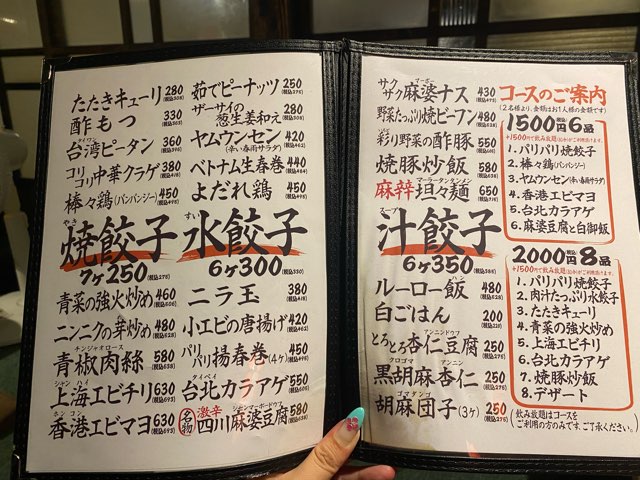 たたきキューリ 280 (税込308)
酢もつ 330 (税込363)
台湾ピータン 360 (税込396)
コリコリ中華クラゲ 380 (税込418)
棒々鶏(バンバンジー) 450 (税込495)
茹でピーナッツ 250 (税込275)
ザーサイの葱生姜和え 280 (税込308)
ヤムウンセン(辛い春雨サラダ) 420 (税込462)
ベトナム生春巻 440 (税込484)
よだれ鶏 450 (税込495)
焼餃子 やき
7ヶ250 (税込275)
水餃子 すい
6ヶ300 (税込330)
青菜の強火炒め 460 (税込506)
ニンニクの芽炒め 480 (税込528)
青椒肉絲 チンジャオロース 580 (税込638)
上海エビチリ シャンハイ 630 (税込693)
香港エビマヨ ホンコン 630 (税込693)
ニラ玉 380 (税込418)
小エビの唐揚げ 420 (税込462)
パリパリ揚春巻(4ヶ) 450 (税込495)
台北カラアゲ タイペイ 550 (税込605)
名物 激辛 四川麻婆豆腐 シセンマーボードウフ 580 (税込638)
サクザク麻婆ナス マーボー 430 (税込473)
野菜たっぷり焼ビーフン 480 (税込528)
彩り野菜の酢豚 550 (税込605)
焼豚炒飯 580 (税込638)
麻辣坦々麺 マーラータンタンメン 650 (税込715)
汁餃子 スープ
6ヶ350 (税込385)
ルーロー飯 ハン 480 (税込528)
白ごはん 200 (税込220)
とろとろ杏仁豆腐 アンニンドウフ 250 (税込275)
黒胡麻杏仁 クロゴマアンニン 250 (税込275)
胡麻団子(3ヶ) ゴマダンゴ 250 (税込275)
コースのご案内
(2名様より、金額はお1人様の金額です)
1500円6品
+1500円で飲み放題
1. パリパリ焼餃子
2. 棒々鶏(バンバンジー)
3. ヤムウンセン(辛い春雨サラダ)
4. 香港エビマヨ
5. 台北カラアゲ
6. 麻婆豆腐と白御飯
2000円8品
+1500円で飲み放題
1. パリパリ焼餃子
2. 肉汁たっぷり水餃子
3. たたきキューリ
4. 青菜の強火炒め
5. 上海エビチリ
6. 台北カラアゲ
7. 焼豚炒飯
8. デザート
(飲み放題はコースを
ご利用の方のみです、ご了承ください。)